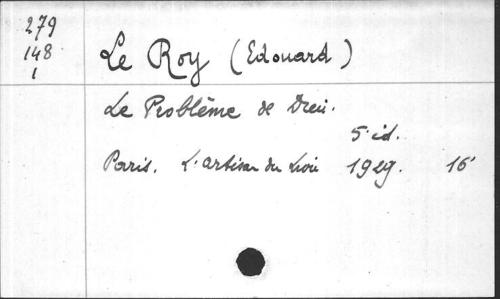 279
148
1
Le Roy (Edouard)
Le Problème de Dieu.
5e éd.
Paris. L'artisan du Livre 1929. 16°